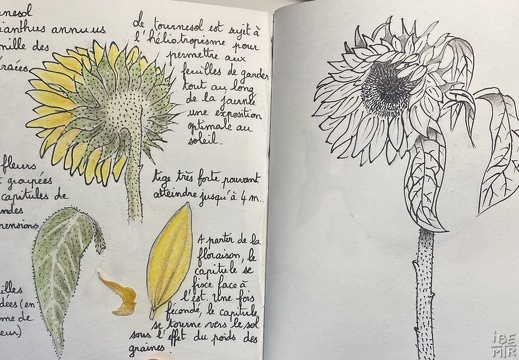 rnesol
ianthus annuus
mille des
éracées
de tournesol est sujet à
l'héliotropisme pour
permettre aux
feuilles de garder
tout au long
de la journée
une exposition
optimale au
soleil.
fleurs
groupées
capitules de
andes
mensions
tige très forte pouvant
atteindre jusqu'à 4 m...
A partir de la
floraison, le
capitule se
fixe face à
l'est. Une fois
fécondé, le capitule
se tourne vers le sol
sous l'effet du poids des
graines
illes
dées (en
me de
eur)
iBE
MIR